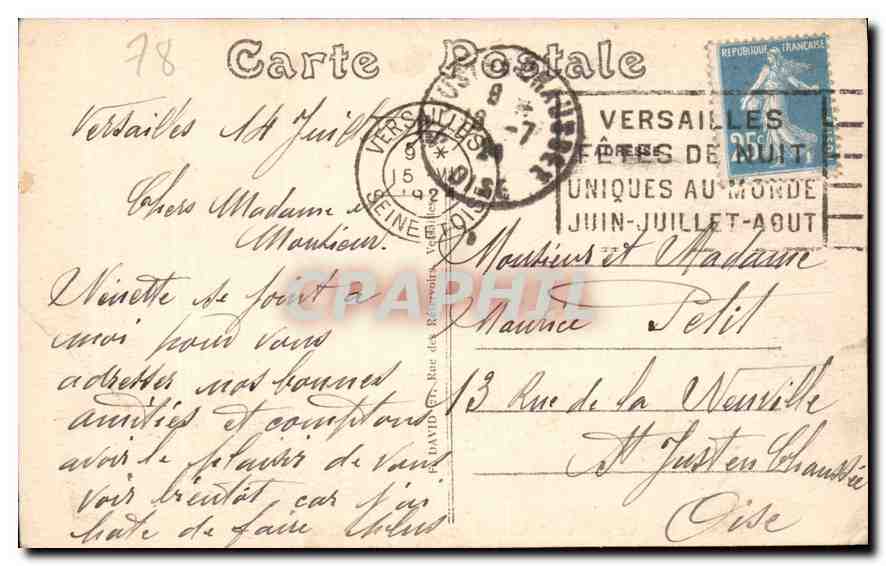 78
Carte Postale
Versailles 14 Juillet
Chers Madame et
Monsieur.
Ninette se joint a
moi pour vous
adresser nos bonnes
amitiés et comptons
avoir le plaisir de vous
voir bientôt car j'ai
hate de faire
VERSAILLES
9 *
15
SEINE ET OISE
8
-7
OISE
REPUBLIQUE FRANÇAISE
25c
VERSAILLES
FÊTES DE NUIT
UNIQUES AU MONDE
JUIN-JUILLET-AOUT
ADRESSE
DAVID 87, Rue des Réservoirs, Versailles
Monsieur et Madame
Maurice Petit
13 Rue de la Neuville
St Just en Chaussée
Oise
CPAPHIL